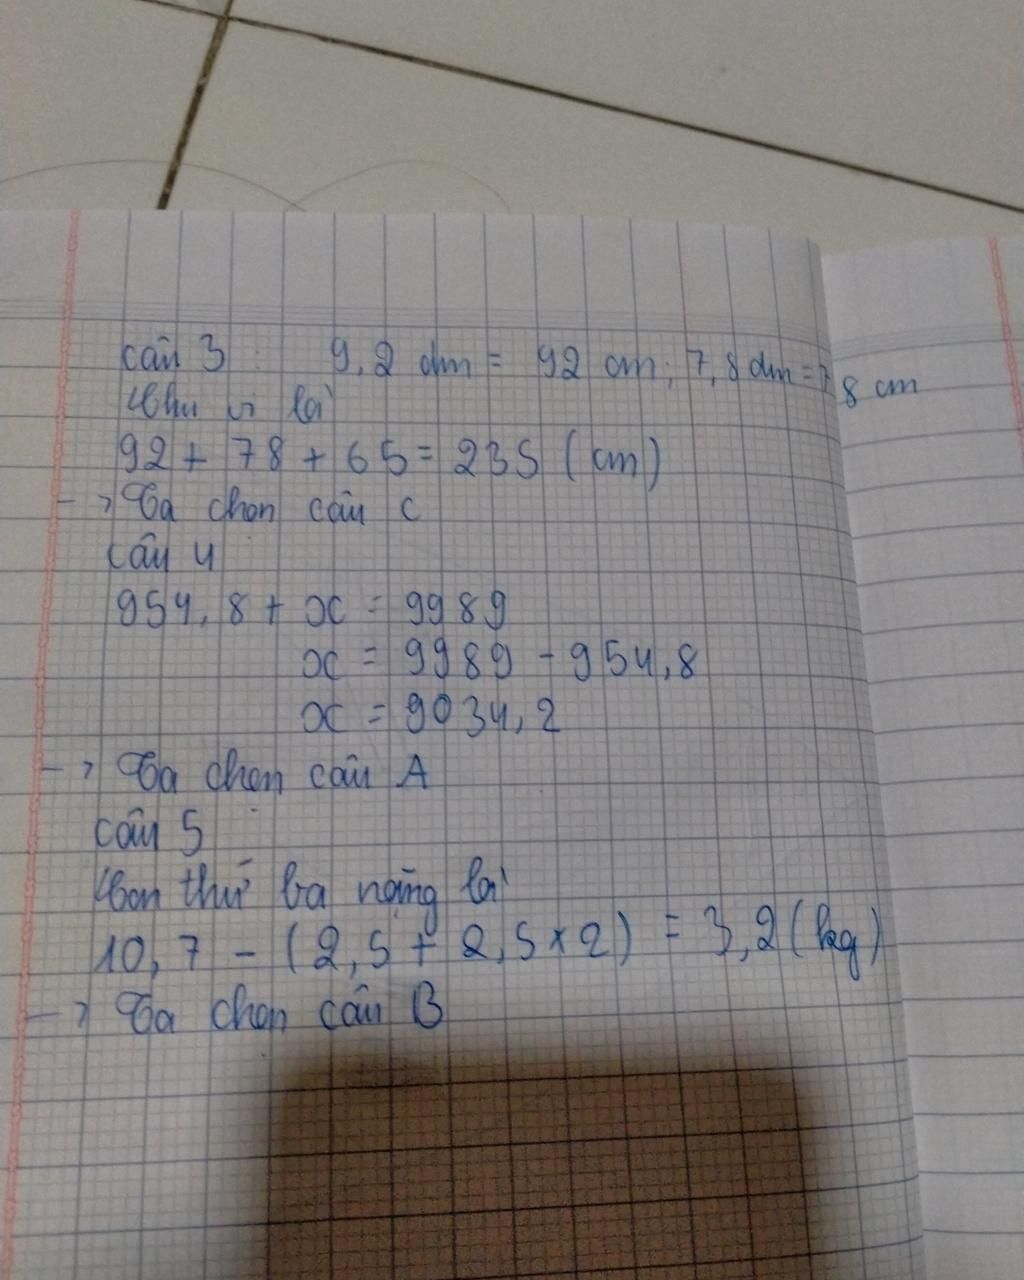 Câu 3: 9,2 dm = 92 cm; 7,8 dm = 78 cm
Chu vi là
92 + 78 + 65 = 235 (cm)
-> Ta chọn câu C
Câu 4
954,8 + x = 9989
x = 9989 - 954,8
x = 9034,2
-> Ta chọn câu A
Câu 5
Con thứ ba nặng là
10,7 - (2,5 + 2,5 x 2) = 3,2 (kg)
-> Ta chọn câu B